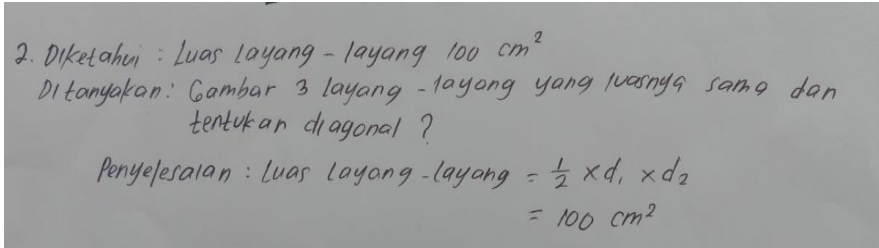 2. Diketahui : Luas layang - layang 100 cm²
Ditanyakan : Gambar 3 layang - layang yang luasnya sama dan
tentukan diagonal ?
Penyelesaian : Luas layang - layang = 1/2 x d₁ x d₂
= 100 cm²